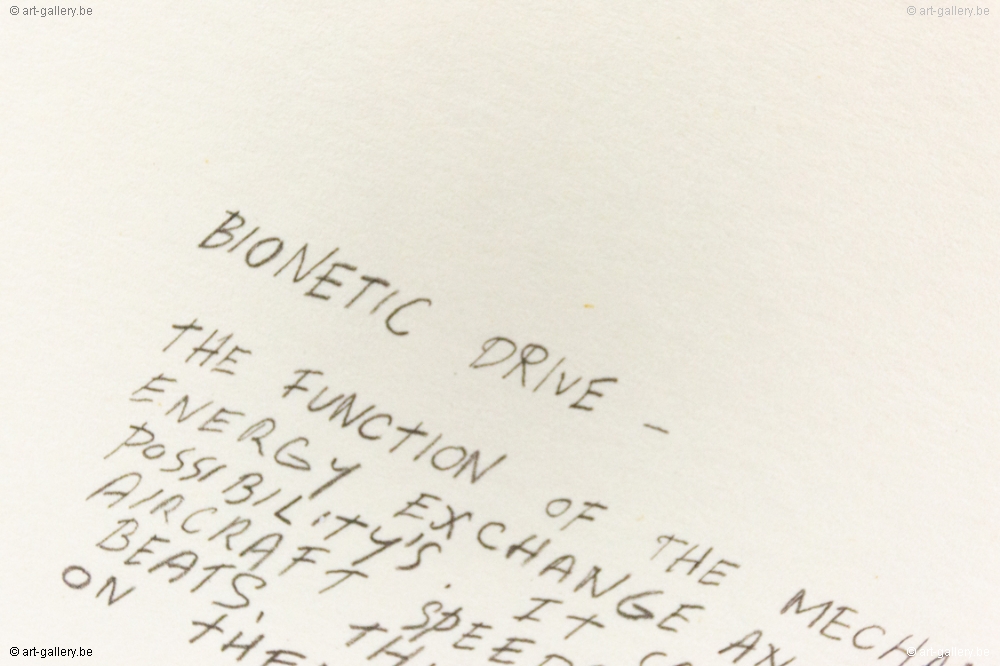 © art-gallery.be
© art-gallery.be
BIONETIC DRIVE -
THE FUNCTION OF THE MECHAN
ENERGY EXCHANGE
POSSIBILITY'S. IT
AIRCRAFT SPEED
BEATS.
ON THE
© art-gallery.be
© art-gallery.be